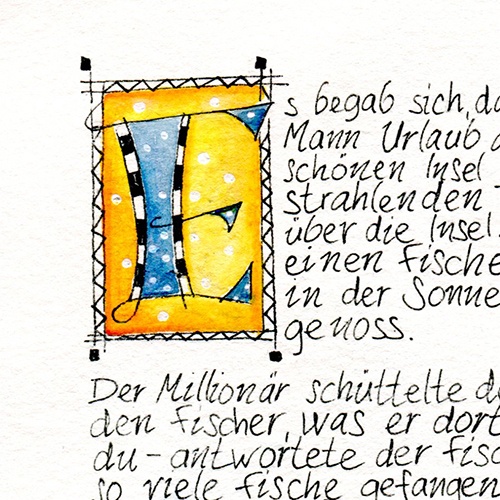 Es begab sich, da
Mann Urlaub a
schönen Insel
strahlenden
über die Insel
einen Fische
in der Sonne
genoss.
Der Millionär schüttelte d
den Fischer, was er dort
du - antwortete der Fisc
so viele Fische gefangen